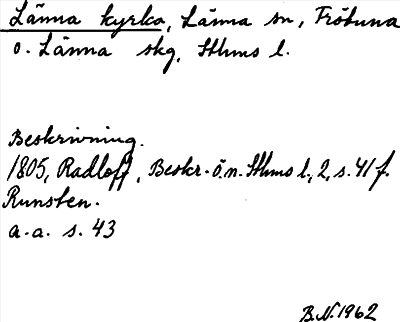 Länna kyrka, Länna sn, Frötuna
o. Länna skg, Sthms l.
Beskrivning.
1805, Radloff, Beskr. ö. n. Sthms l., 2, s. 41 f.
Runsten.
a. a. s. 43
B.N. 1962